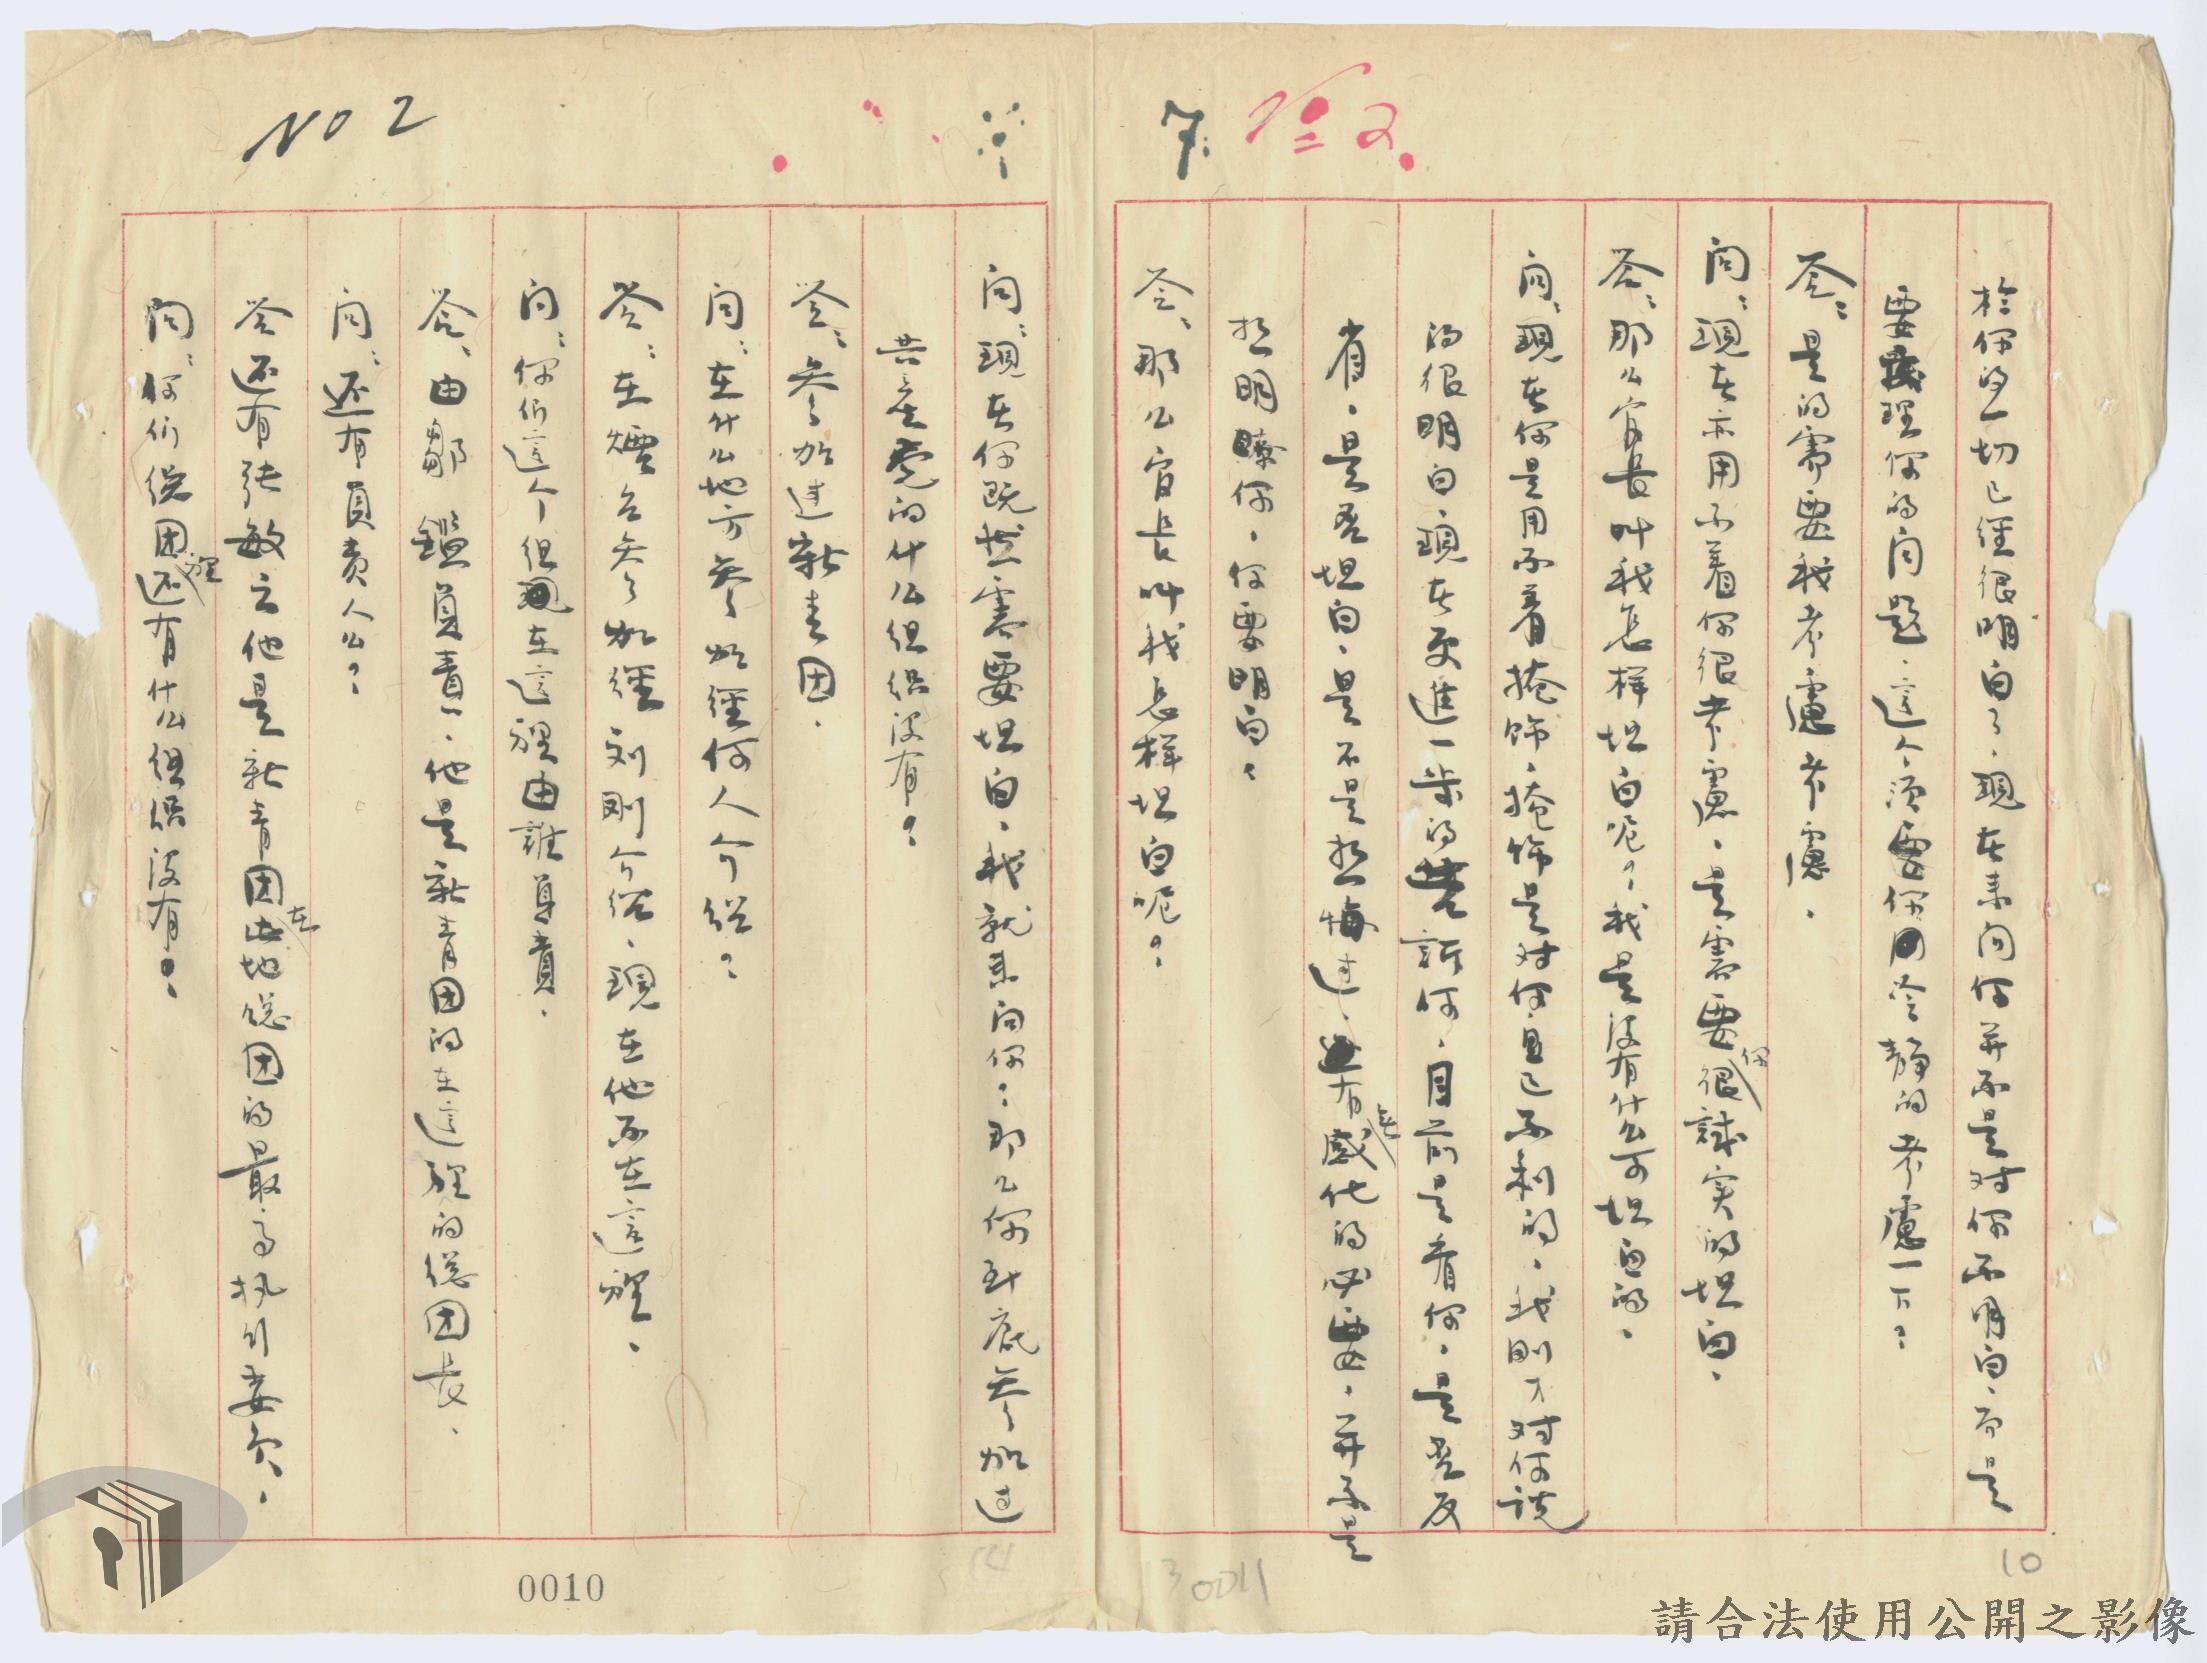 於你的一切已經很明白了、現在来问你并不是对你不明白、而是
要理你的问题、這个須要你冷静的考慮一下：
答：是的需要我考慮考慮、
问：現在亦用不着你很考慮、是需要你很誠实的坦白、
答：那么官長叫我怎样坦白呢？我是没有什么可坦白的、
问：現在你是用不着掩饰、掩饰是对你自己不利的、我刚才对你説
的很明白、現在更進一步的告訴你、目前是看你、是否反
省、是否坦白、是不是悔过、有無感化的必要、并不是
想明瞭你、你要明白：
答、那么官長叫我怎样坦白呢？
问：現在你既然需要坦白、我就来问你：那么你到底参加过
共産党的什么组织没有？
答：参加过新青团、
问：在什么地方参加經何人介绍？
答：在煙台参加經刘刚介绍、現在他不在這裡、
问：你们這个组現在這裡由誰負責、
答、由鄒鑑負責、他是新青团的在這裡的總团長、
问：还有負责人么？
答还有張敏之他是新青团在此地總团的最高执行委員、
问：你们總团裡还有什么组织没有？
NO 2
0010
0011
10
請合法使用公開之影像